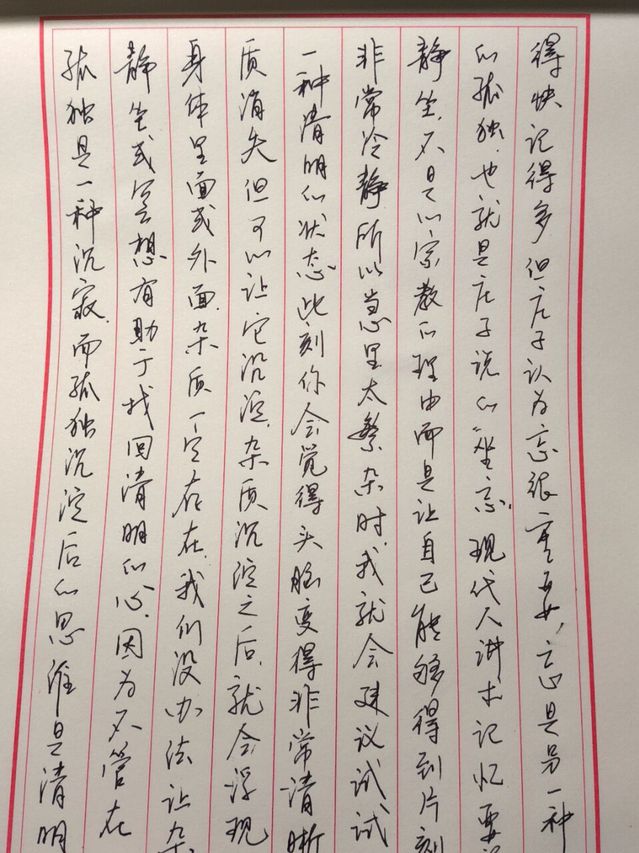 孤独是一种沉寂.而孤独沉淀后的思维是清明
静坐或冥想有助于找回清明的心.因为不管在
身体里面或外面.杂质一定存在.我们没办法让杂
质消失但可以让它沉淀.杂质沉淀之后.就会浮现
一种清明的状态此刻你会觉得头脑变得非常清晰
非常冷静所以当心里太繁杂时.我就会建议试试
静坐.不是以宗教的理由而是让自己能够得到片刻
的孤独.也就是庄子说的坐忘.现代人讲求记忆要记
得快记得多但庄子认为忘很重要,忘是另一种